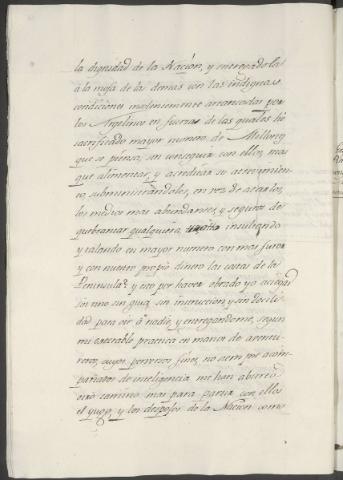 la dignidad de la Nación, y entregadola
á la mofa de las demas con las indignas
condiciones insolentemente arrancadas por
los Argelinos en fuerza de las quales he
sacrificado mayor numero de Millones
que se piensa, sin conseguir con ellos, mas
que alimentar, y acreditar su atrevimien
to, subministrandoles, en vez de atarlos,
los medios mas abundantes, y seguros de
quebrantar qualquiera, insultando
y talando en mayor numero con mas furor
y con nuestro propio dinero las costas de la
Peninsula: y esto por haver obrado yo á ciegas
sin tino sin guia, sin instruccion y sin docili
dad para oir á nadie, y entregandome, segun
mi execrable practica en manos de aventu
reros, cuyos perversos fines, no siempre acom
pañados de inteligencia me han abierto
otro camino mas para partir con ellos
el jugo, y los despojos de la Nacion como